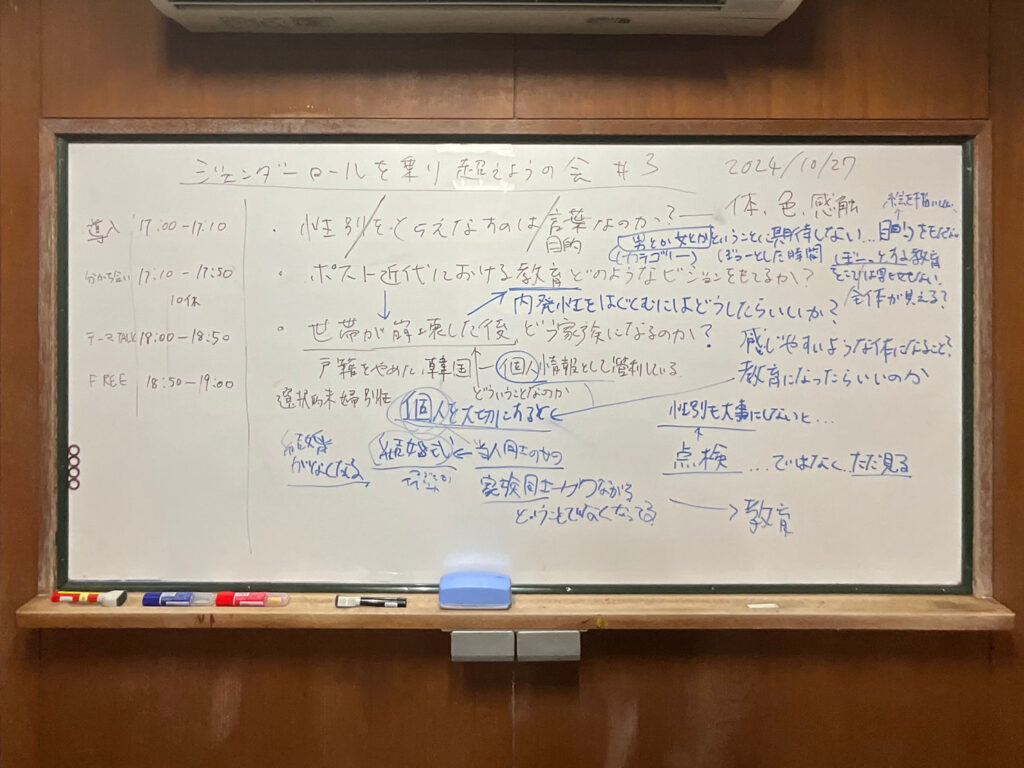 ジェンダーロールを乗り超えようの会 #3 2024/10/27
導入 17:00-17:10
分かち合い 17:10-17:50
10休
テーマTALK 18:00-18:50
FREE 18:50-19:00
・性別をとらえなすのは言葉なのか?― 体、色、感触
目的
男とか女とかということに期待しない…目的をもたない
(カテゴリー) ぼーっとした時間 ぼーっとする教育
・ポスト近代における教育どのようなビジョンをもてるか?
全体が見える?
内発性をはぐくむにはどうしたらいいか?
・世帯が崩壊した後、どう家族になるのか?
感じやすいような体になること?
戸籍をやめた韓国―個人情報として管利している
教育になったらいいのか
選択的夫婦別姓 どういうことなのか
個人を大切にあると
性別も大事にしないと…
結婚がなくなる
結婚式 ← 当人同士のもの
点検 …ではなく、ただ見る
家族同士がつながる
ということでなくなってる
→ 教育